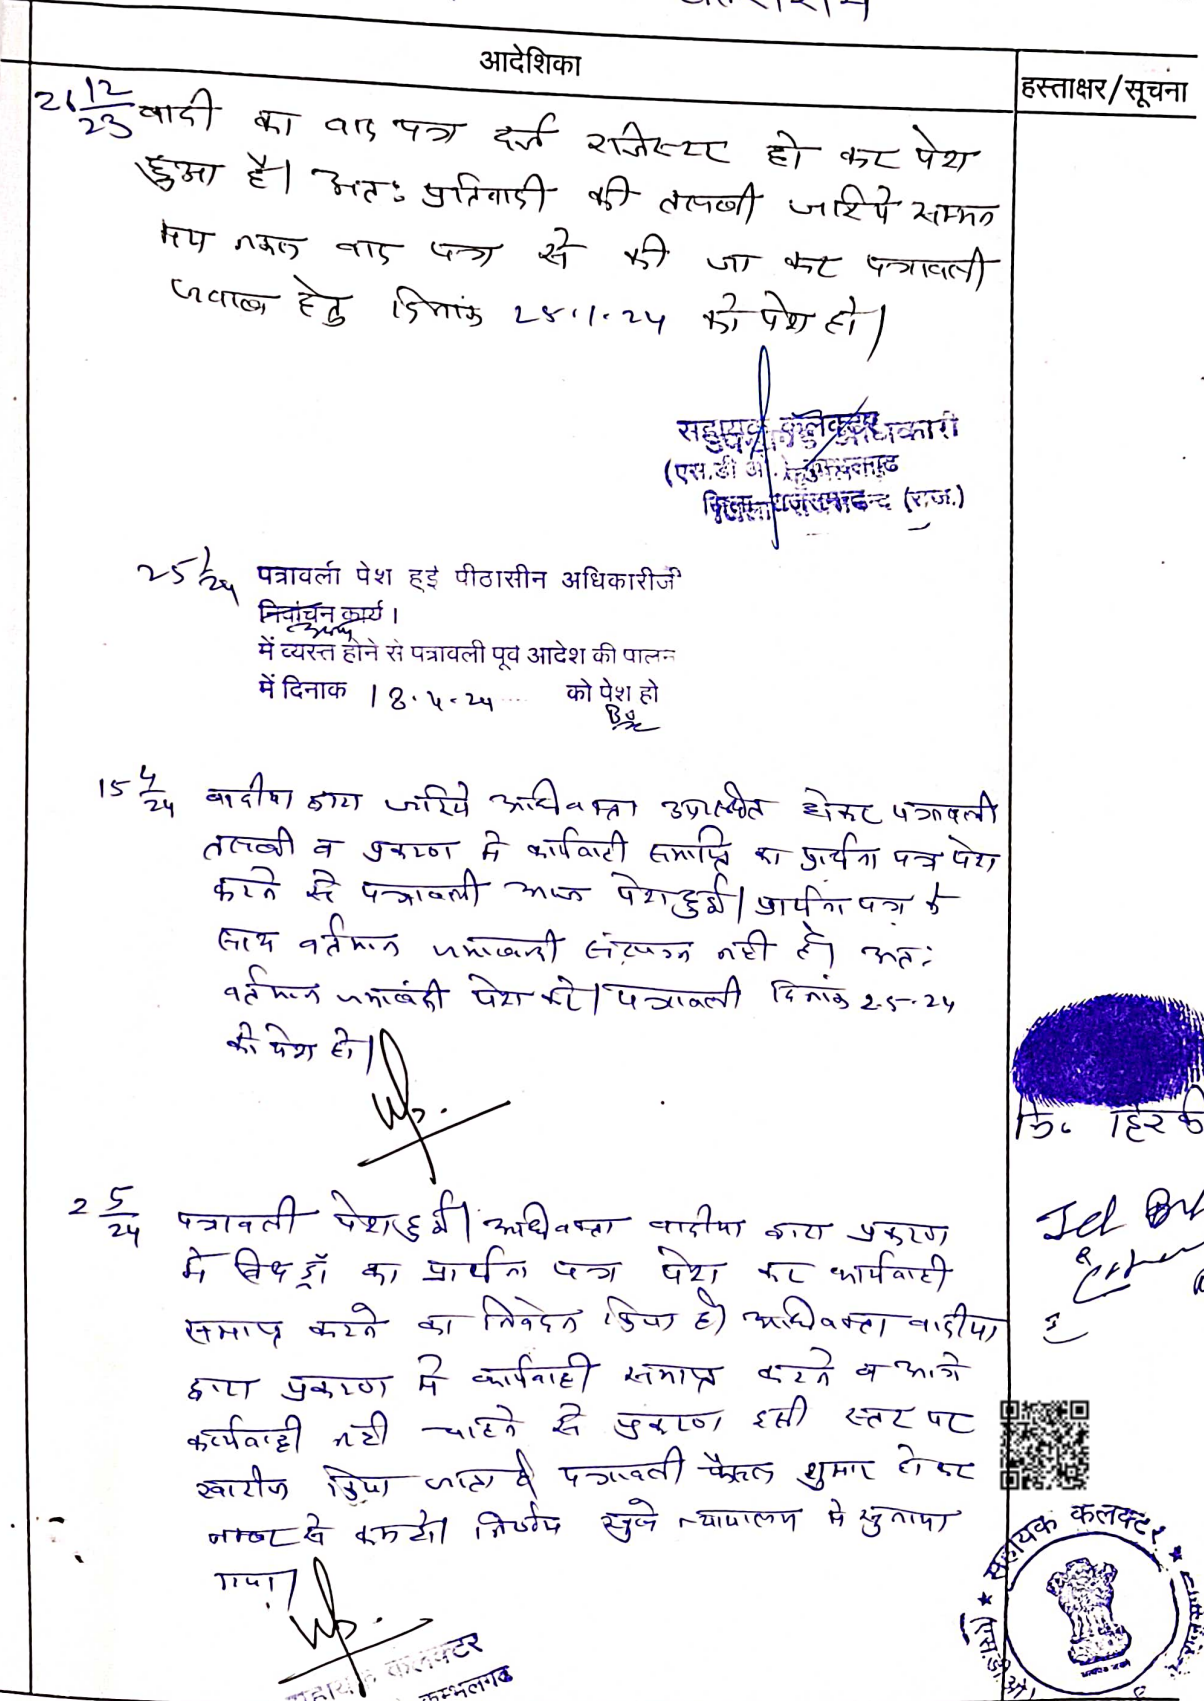 आदेशिका
हस्ताक्षर/सूचना
21 12/23 वादी का वाद पत्र दर्ज रजिस्टर हो कर पेश
हुआ है। अतः प्रतिवादी की तलबी जरिये सम्मन
मय नकल वाद पत्र से की जा कर पत्रावली
जवाब हेतु दिनांक 25.1.24 को पेश हो।
सहायक कलेक्टर
(एस.डी.ओ.) कुम्भलगढ़
जिला राजसमन्द (राज.)
25 1/24 पत्रावली पेश हुई पीठासीन अधिकारीजी
निर्वाचन कार्य।
में व्यस्त होने से पत्रावली पूर्व आदेश की पालन
में दिनांक 18.4.24 को पेश हो
15 4/24 वादीया द्वारा जरिये अधिवक्ता उपस्थित होकर पत्रावली
तलबी व प्रकरण मे कार्यवाही समाप्ति का प्रार्थना पत्र पेश
करने से पत्रावली आज पेश हुई। प्रार्थना पत्र के
साथ वर्तमान जमाबन्दी संलग्न नही है। अतः
वर्तमान जमाबंदी पेश करे। पत्रावली दिनांक 2.5.24
को पेश हो।
2 5/24 पत्रावली पेश हुई। अधिवक्ता वादीया द्वारा प्रकरण
मे विथ ड्रॉ का प्रार्थना पत्र पेश कर कार्यवाही
समाप्त करने का निवेदन किया है। अधिवक्ता वादीया
द्वारा प्रकरण मे कार्यवाही समाप्त करने व आगे
कार्यवाही नही चाहने से प्रकरण इसी स्तर पर
खारीज किया जाता है पत्रावली फैसल शुमार होकर
नम्बर से कम हो। निर्णय खुले न्यायालय मे सुनाया
गया।
सहायक कलक्टर
कुम्भलगढ
सहायक कलक्टर